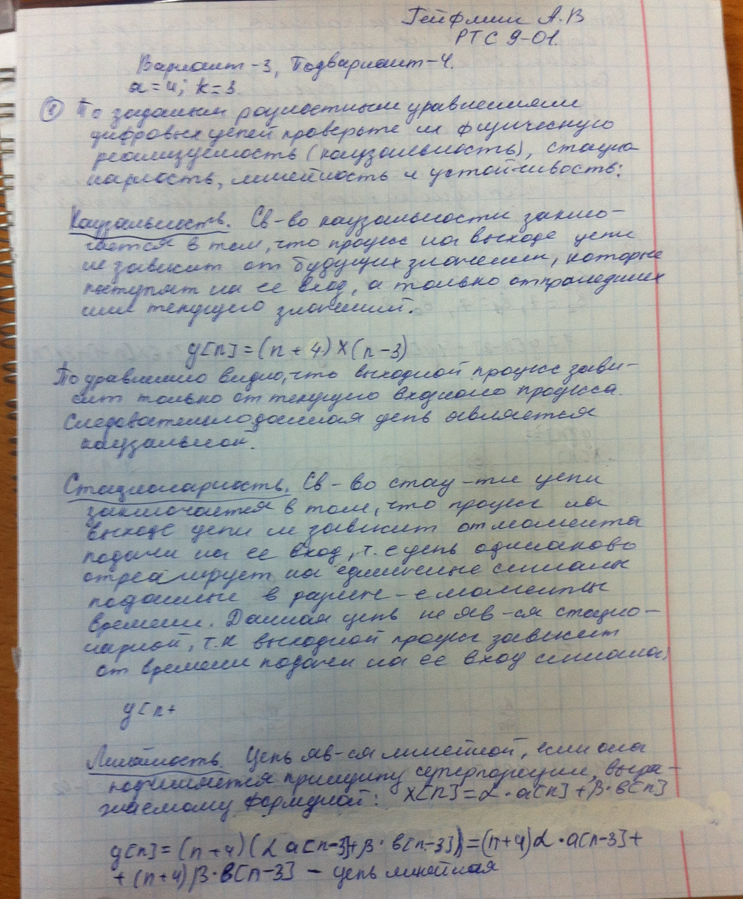 Гейфлиш А.В
РТС 9-01.
Вариант-3, Подвариант-4.
a=4; k=3
① По заданым разностным уравнениям
цифровых цепей проверьте их физическую
реализуемость (каузальность), стацио
нарность, линейность и устойчивость:
Каузальность. Св-во каузальности заклю-
чается в том, что процесс на выходе цепи
не зависит от будущих значений, которые
поступят на её вход, а только от прошедших
или текущего значений.
y[n]=(n+4)x(n-3)
По уравнению видно, что выходной процесс зави-
сит только от текущего входного процесса.
Следовательно данная цепь является
каузальной.
Стационарность. Св-во стац-ти цепи
заключается в том, что процесс на
выходе цепи не зависит от момента
подачи на её вход, т.е цепь одинаково
отреагирует на единичные сигналы
поданные в различ-е моменты
времени. Данная цепь не яв-ся стацио-
нарной, т.к выходной процесс зависит
от времени подачи на её вход сигнала.
y[n+
Линейность. Цепь яв-ся линейной, если она
подчиняется принципу суперпозиции, выра-
жаемому формулой: x[n]=α·a[n]+β·b[n]
y[n]=(n+4)(α a[n-3]+β·b[n-3])=(n+4)α·a[n-3]+
+(n+4)β·b[n-3] – цепь линейная